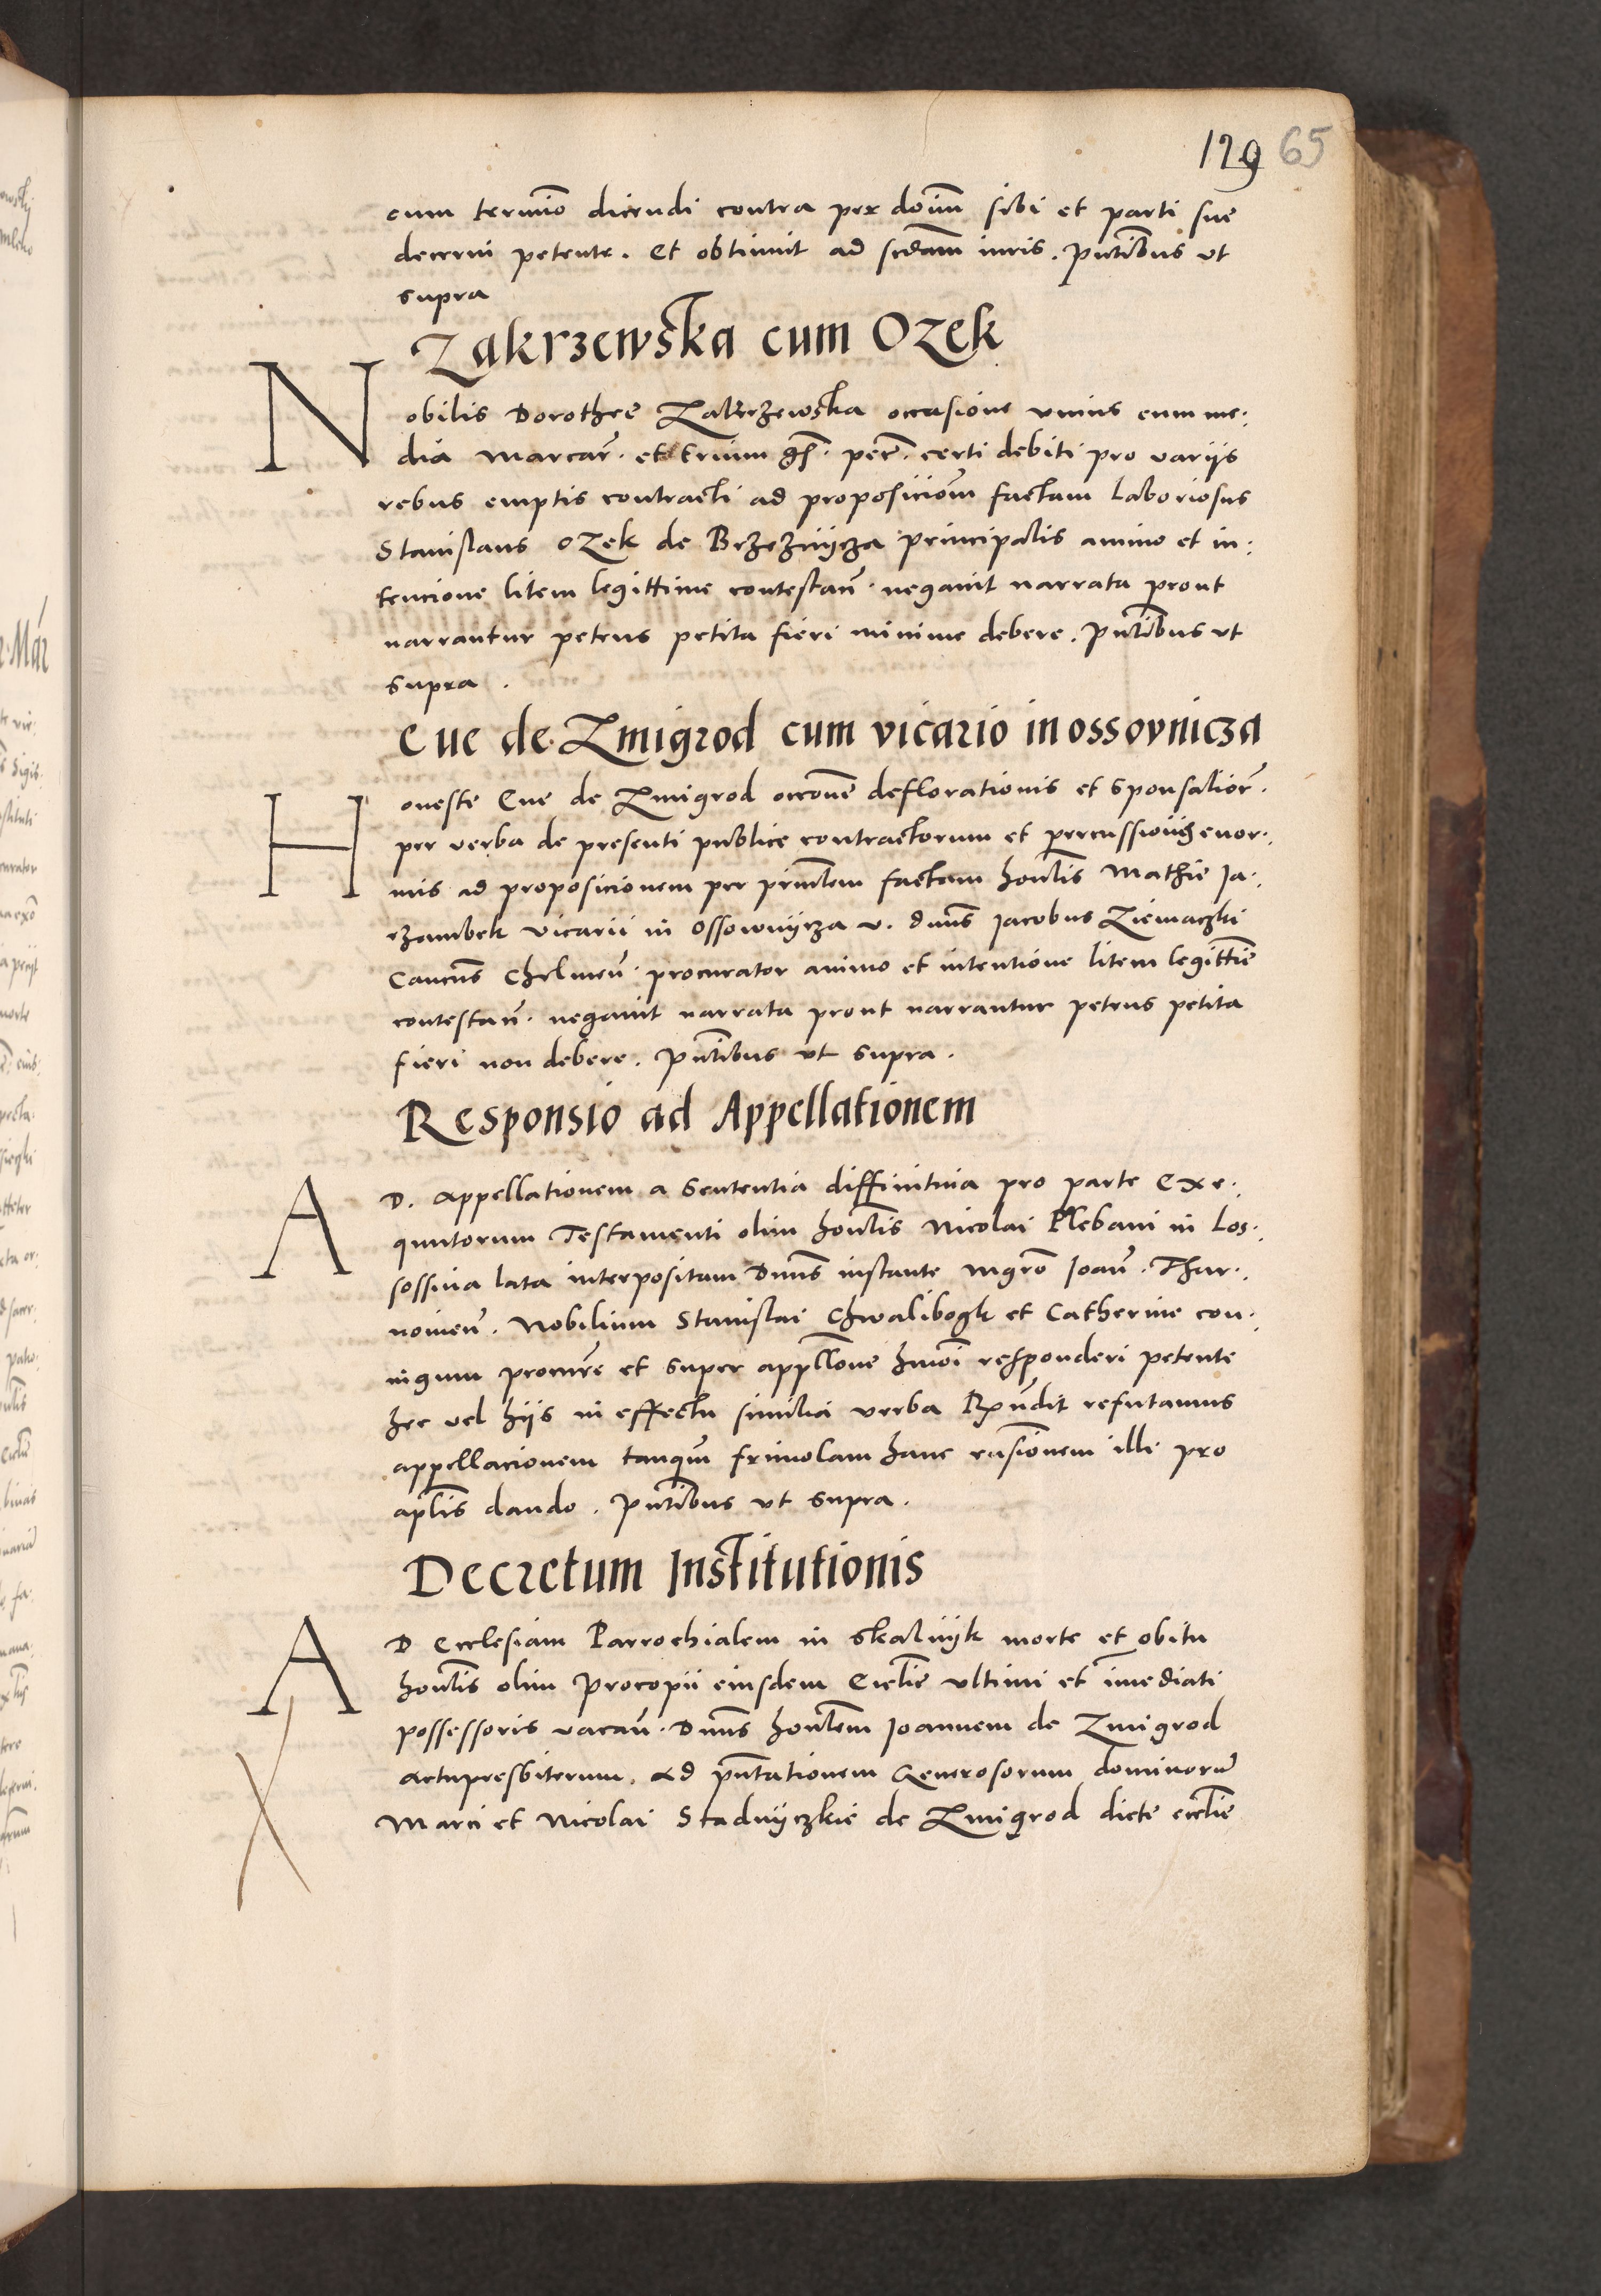 129 65
cum termĩo dicendi contra per dom̃m sibi et parti sue
decerni petente. Et obtinuit ad sc̃dam iuris. Pñtibus vt
supra
Zakrzewska cum Ozek
Nobilis Dorothee Zakrzewska occasione vnius cum me:
dia marcar̃. et trium gr̃. pec̃. certi debiti pro variis
rebus emptis contracti ad proposicioñm factam Laboriosus
Stanislaus Ozek de Brzeznijcza principalis animo et in:
tencione litem legittime contestañ. negauit narrata prout
narrantur petens petita fieri minime debere. Pñtibus vt
supra.
Eue de Zmigrod cum vicario in ossovnicza
Honeste Eue de Zmigrod occõne deflorationis et sponsalior̃.
per verba de presenti publice contractorum et percussionis enor:
mis ad proposicionem per prin̄lem factam hon̄lis Mathie Ja:
rzambek vicarii in Ossownijcza v. dñus Jacobus Ziemaczki
Cancñs Chelmeñ. procurator animo et intentione litem legittĩe
contestañ. negauit narrata prout narrantur petens petita
fieri non debere. Pñtibus vt supra.
Responsio ad Appellationem
AD. Appellationem a sententia diffinitiua pro parte Exe:
quutorum Testamenti olim hon̄lis Nicolai Plebani in Los:
sossina lata interpositam Dñus instante mgr̃o Joañ. Thar:
nouieñ. Nobilium Stanislai Chwalibogk et Catherine con:
iugum procur̃e et super appl̃lone hmõi responderi petente
hec vel hijs in effectu similia verba Rñdit refutamus
appellacionem tanq̃m friuolam hanc rñsionem illi pro
apl̃is dando. Pñtibus vt supra.
Decretum Institutionis
AD Ecclesiam Parrochialem in Skalnijk morte et obitu
hon̄lis olim Procopii eiusdem Eccl̃ie vltimi et im̃ediati
possessoris vacañ. Dñus hon̄lem Joannem de Zmigrod
Actupresbiterum. Ad pñtationem Generosorum dominorũ
Marci et Nicolai Stadnijczkie de Zmigrod dicte eccl̃ie